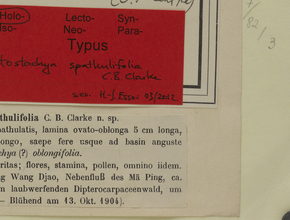 Holo- Lecto- Syn-
Iso- Neo- Para-
Typus
spathulifolia
C.B. Clarke
H.-J. Esser 03/2022
thulifolia C. B. Clarke n. sp.
pathulatis, lamina ovato-oblonga 5 cm longa,
longo, saepe fere usque ad basin anguste
chya (?) oblongifolia.
ritas; flores, stamina, pollen, omnino iidem.
g Wang Djao, Nebenfluß des Mä Ping, ca.
n laubwerfenden Dipterocarpaceenwald, um
— Blühend am 13. Okt. 1904).
82
3